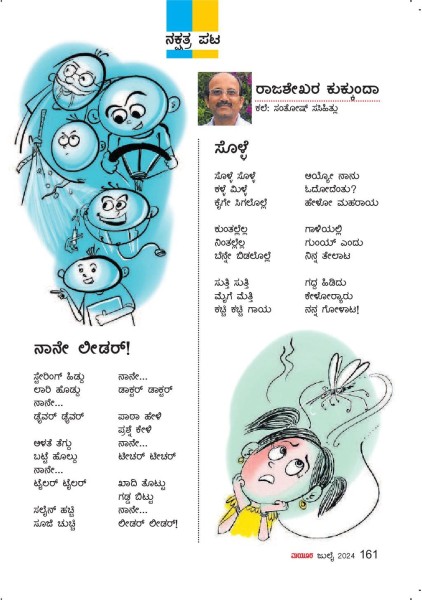 ನಕ್ಷತ್ರ ಪಟ
ರಾಜಶೇಖರ ಕುಕ್ಕುಂದಾ
ಕಲೆ: ಸಂತೋಷ್ ಸಸಿಹಿತ್ಲು
ಸೊಳ್ಳೆ
ಸೊಳ್ಳೆ ಸೊಳ್ಳೆ
ಕಳ್ಳ ಮಿಳ್ಳೆ
ಕೈಗೇ ಸಿಗಲೊಲ್ಲೆ
ಕುಂತಲ್ಲೆಲ್ಲ
ನಿಂತಲ್ಲೆಲ್ಲ
ಬೆನ್ನೇ ಬಿಡಲೊಲ್ಲೆ
ಸುತ್ತಿ ಸುತ್ತಿ
ಮೈಗೆ ಮೆತ್ತಿ
ಕಚ್ಚಿ ಕಚ್ಚಿ ಗಾಯ
ಅಯ್ಯೋ ನಾನು
ಓದೋದೆಂತು?
ಹೇಳೋ ಮಹರಾಯ
ಗಾಳಿಯಲ್ಲಿ
ಗುಂಯ್ ಎಂದು
ನಿನ್ನ ತೇಲಾಟ
ಗದ್ದ ಹಿಡಿದು
ಕೇಳೋರ‍್ಯಾರು
ನನ್ನ ಗೋಳಾಟ!
ನಾನೇ ಲೀಡರ್!
ಸ್ಟೇರಿಂಗ್ ಹಿಡ್ದು
ಲಾರಿ ಹೊಡ್ದು
ನಾನೇ...
ಡ್ರೈವರ್ ಡ್ರೈವರ್
ಅಳತೆ ತೆಗ್ದು
ಬಟ್ಟೆ ಹೊಲ್ದು
ನಾನೇ...
ಟೈಲರ್ ಟೈಲರ್
ಸಲೈನ್ ಹಚ್ಚಿ
ಸೂಜಿ ಚುಚ್ಚಿ
ನಾನೇ...
ಡಾಕ್ಟರ್ ಡಾಕ್ಟರ್
ಪಾಠಾ ಹೇಳಿ
ಪ್ರಶ್ನೆ ಕೇಳಿ
ನಾನೇ...
ಟೀಚರ್ ಟೀಚರ್
ಖಾದಿ ತೊಟ್ಟು
ಗಡ್ಡ ಬಿಟ್ಟು
ನಾನೇ...
ಲೀಡರ್ ಲೀಡರ್!
ಮಯೂರ ಜುಲೈ 2024 161